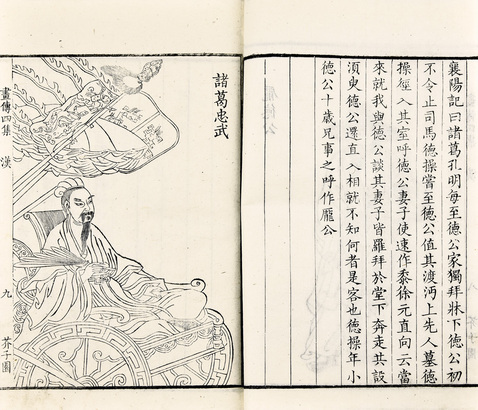 襄陽記曰諸葛孔明每至德公家獨拜牀下德公初
不令止司馬德操嘗至德公值其渡沔上先人墓德
操徑入其室呼德公妻子使速作黍徐元直向云當
來就我與德公談其妻子皆羅拜於堂下奔走共設
須臾德公還直入相就不知何者是客也德操年小
德公十歲兄事之呼作龐公
諸葛忠武
畫傳四集 漢 九 芥子園